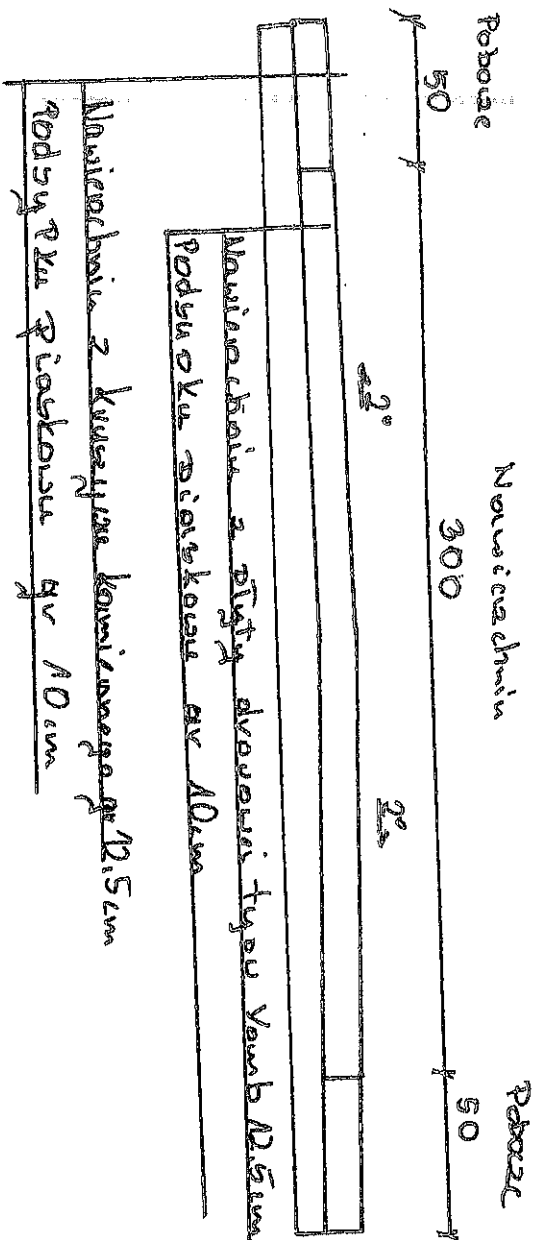 Pobocze Nawierzchnia Pobocze
50 300 50
2% 2%
Nawierzchnia z płyty drogowej typu Yomb 12,5cm
Podsypka piaskowa gr 10cm
Nawierzchnia z kruszywa kamiennego gr 12,5cm
Podsypka piaskowa gr 10cm